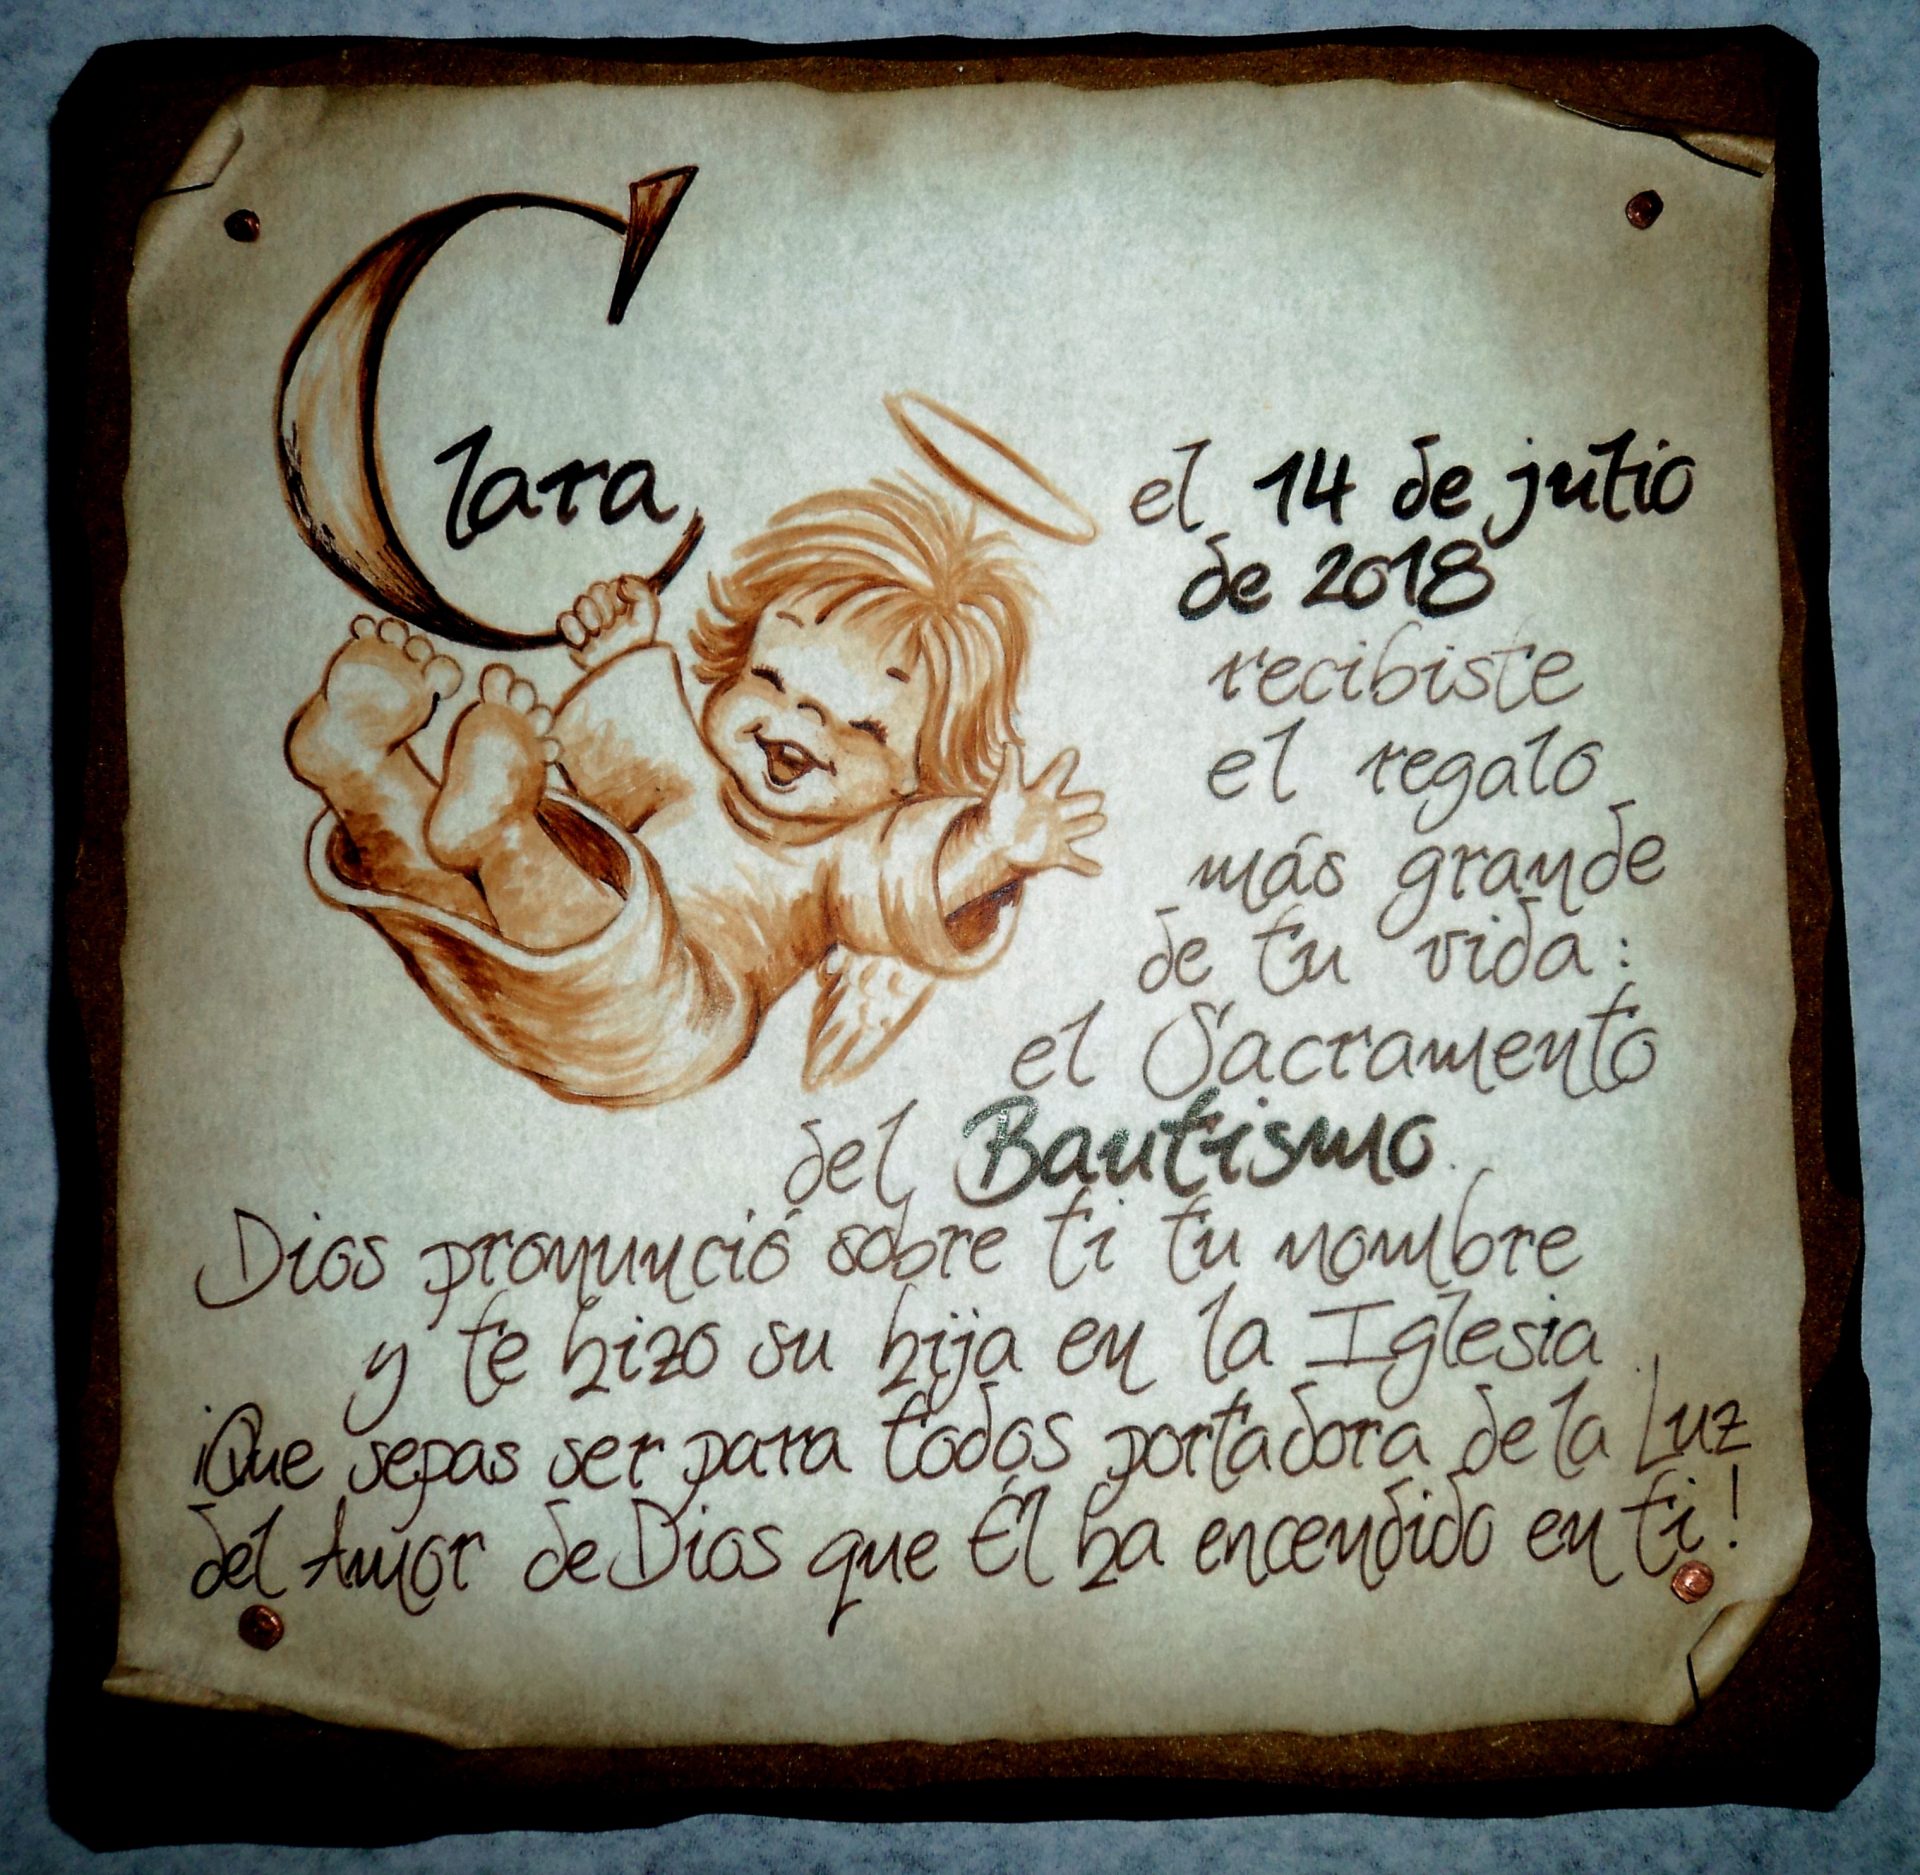 Clara, el 14 de julio
de 2018
recibiste
el regalo
más grande
de tu vida:
el Sacramento
del Bautismo.
Dios pronunció sobre ti tu nombre
y te hizo su hija en la Iglesia.
¡Que sepas ser para todos portadora de la Luz
del Amor de Dios que Él ha encendido en ti!